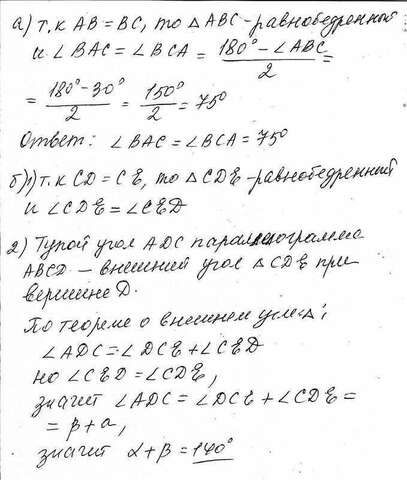 а) т.к АВ = ВС, то △АВС - равнобедренный
и ∠ВАС = ∠ВСА = (180° - ∠АВС)/2 =
= (180° - 30°)/2 = 150°/2 = 75°
Ответ: ∠ВАС = ∠ВСА = 75°
б) 1) т.к CD = CE, то △CDE - равнобедренный
и ∠CDE = ∠CED
2) Тупой угол ADC параллелограмма
ABCD – внешний угол △CDE при
вершине D.
По теореме о внешнем угле △:
∠ADC = ∠DCE + ∠CED
но ∠CED = ∠CDE,
значит ∠ADC = ∠DCE + ∠CDE =
= β + α,
значит α + β = 140°